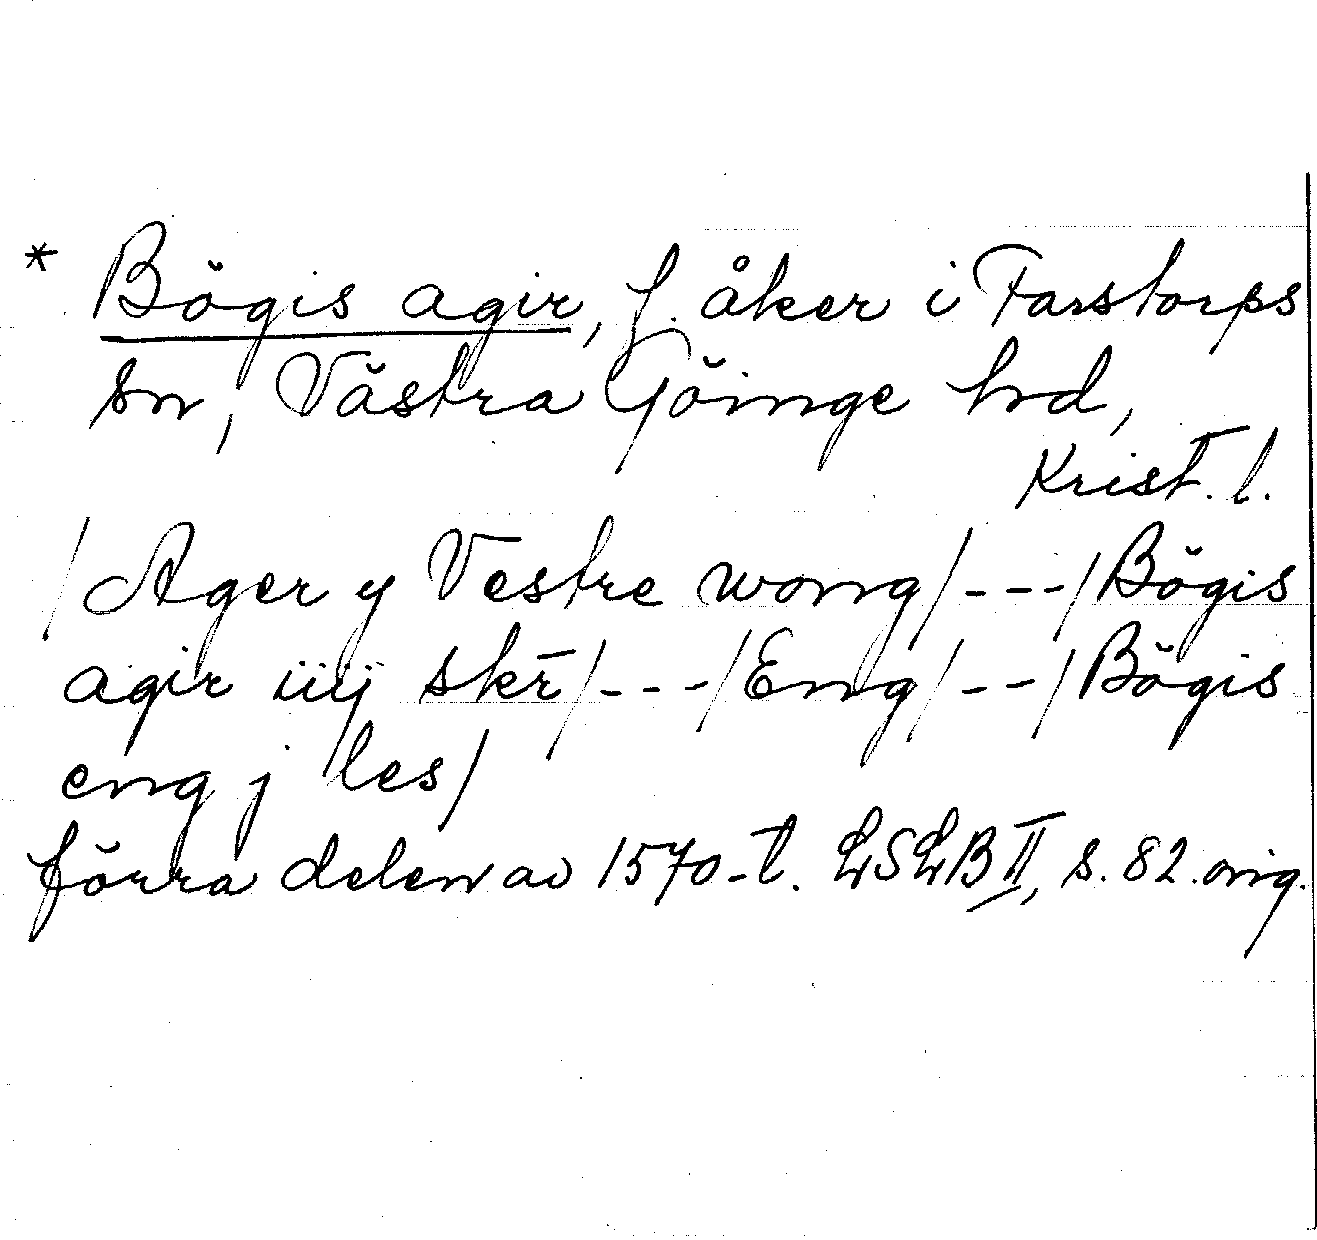 * Bögis agir, f. åker i Farstorps
sn, Västra Göinge hd,
Krist. l.
/Ager y Vestre wong/---/Bögis
agir iiij skr̄/---/Eng/--/Bögis
eng j les/
förra delen av 1570-t. LSLB II, s. 82. orig.